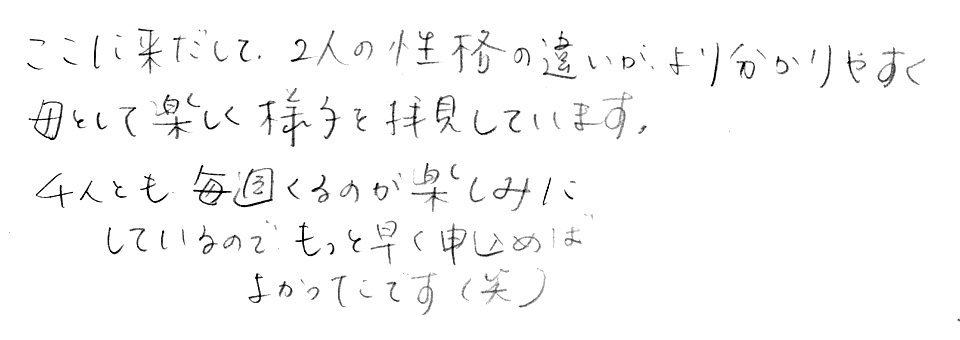 ここに来だして、2人の性格の違いが、より分かりやすく
母として楽しく様子を拝見しています。
4人とも毎週くるのが楽しみに
しているので、もっと早く申込めば
よかったです(笑)